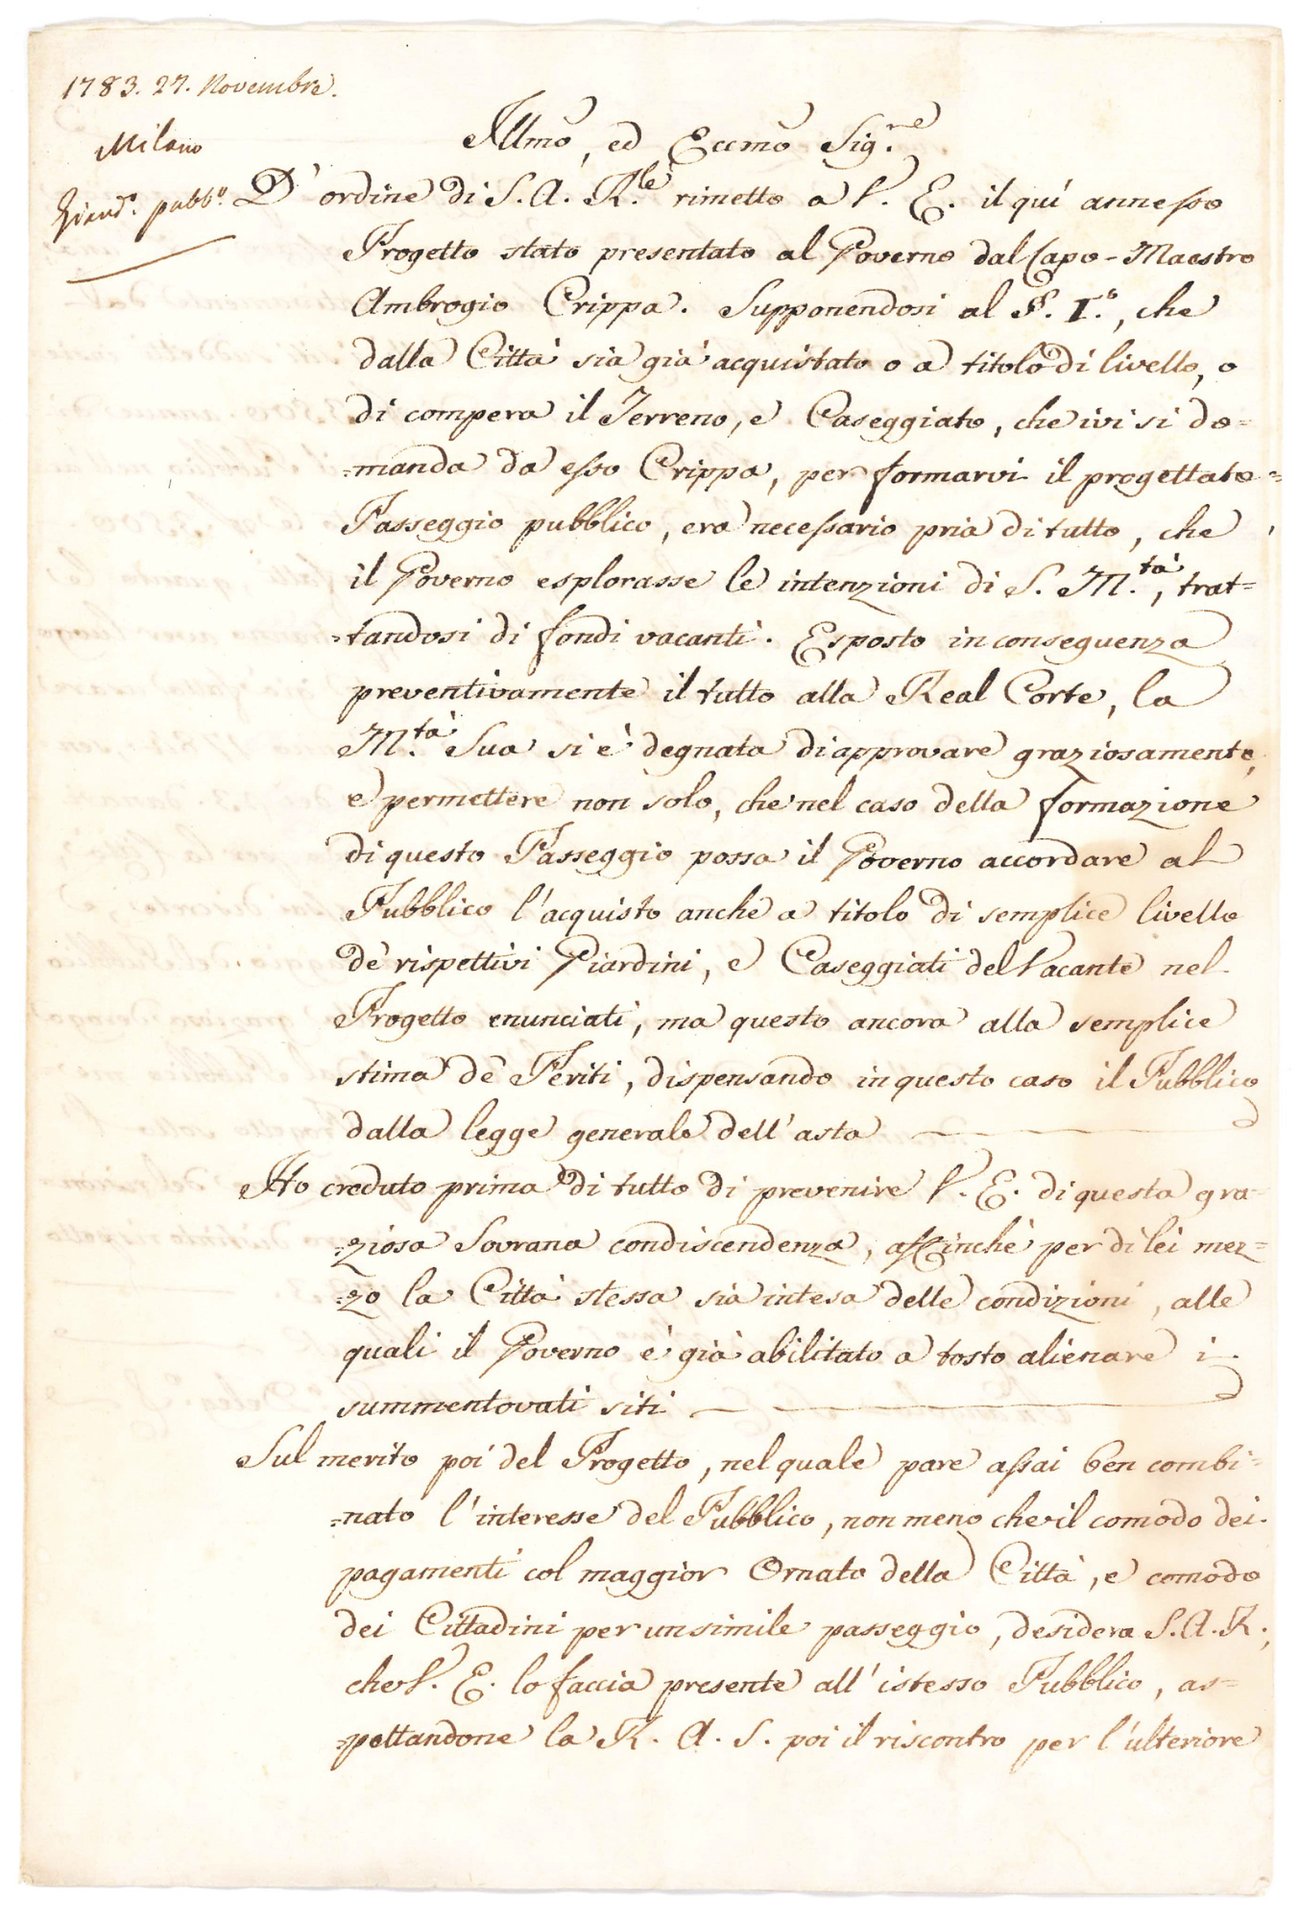 1783. 27. Novembre.
Milano
Giard.ⁿ pubb.º
Illmo, ed Eccmo Sig.ʳᵉ
D'ordine di S. A. R.ˡᵉ rimetto a V. E. il quì annesso
Progetto stato presentato al Governo dal Capo-Maestro
Ambrogio Crippa. Supponendosi al §. I.º, che
dalla Città sia già acquistato o a titolo di livello, o
di compera il Terreno, e Caseggiato, che ivi si do=
=manda da esso Crippa, per formarvi il progettato=
Passeggio pubblico, era necessario pria di tutto, che
il Governo esplorasse le intenzioni di S. M.ᵗᵃ̀, trat=
=tandosi di fondi vacanti. Esposto in conseguenza
preventivamente il tutto alla Real Corte, la
M.ᵗᵃ̀ Sua si è degnata di approvare graziosamente,
e permettere non solo, che nel caso della formazione
di questo Passeggio possa il Governo accordare al
Pubblico l'acquisto anche a titolo di semplice livello
de' rispettivi Giardini, e Caseggiati del Vacante nel
Progetto enunciati, ma questo ancora alla semplice
stima de' Periti, dispensando in questo caso il Pubblico
dalla legge generale dell'asta
Ho creduto prima di tutto di prevenire V. E. di questa gra=
=ziosa Sovrana condiscendenza, affinchè per di lei mez=
=zo la Città stessa sia intesa delle condizioni, alle
quali il Governo è già abilitato a tosto alienare i
summentovati siti
Sul merito poi del Progetto, nel quale pare assai ben combi=
=nato l'interesse del Pubblico, non meno che il comodo dei
pagamenti col maggior Ornato della Città, e comodo
dei Cittadini per un simile passeggio, desidera S. A. R.,
che V. E. lo faccia presente all'istesso Pubblico, as=
=pettandone la R. A. S. poi il riscontro per l'ulteriore